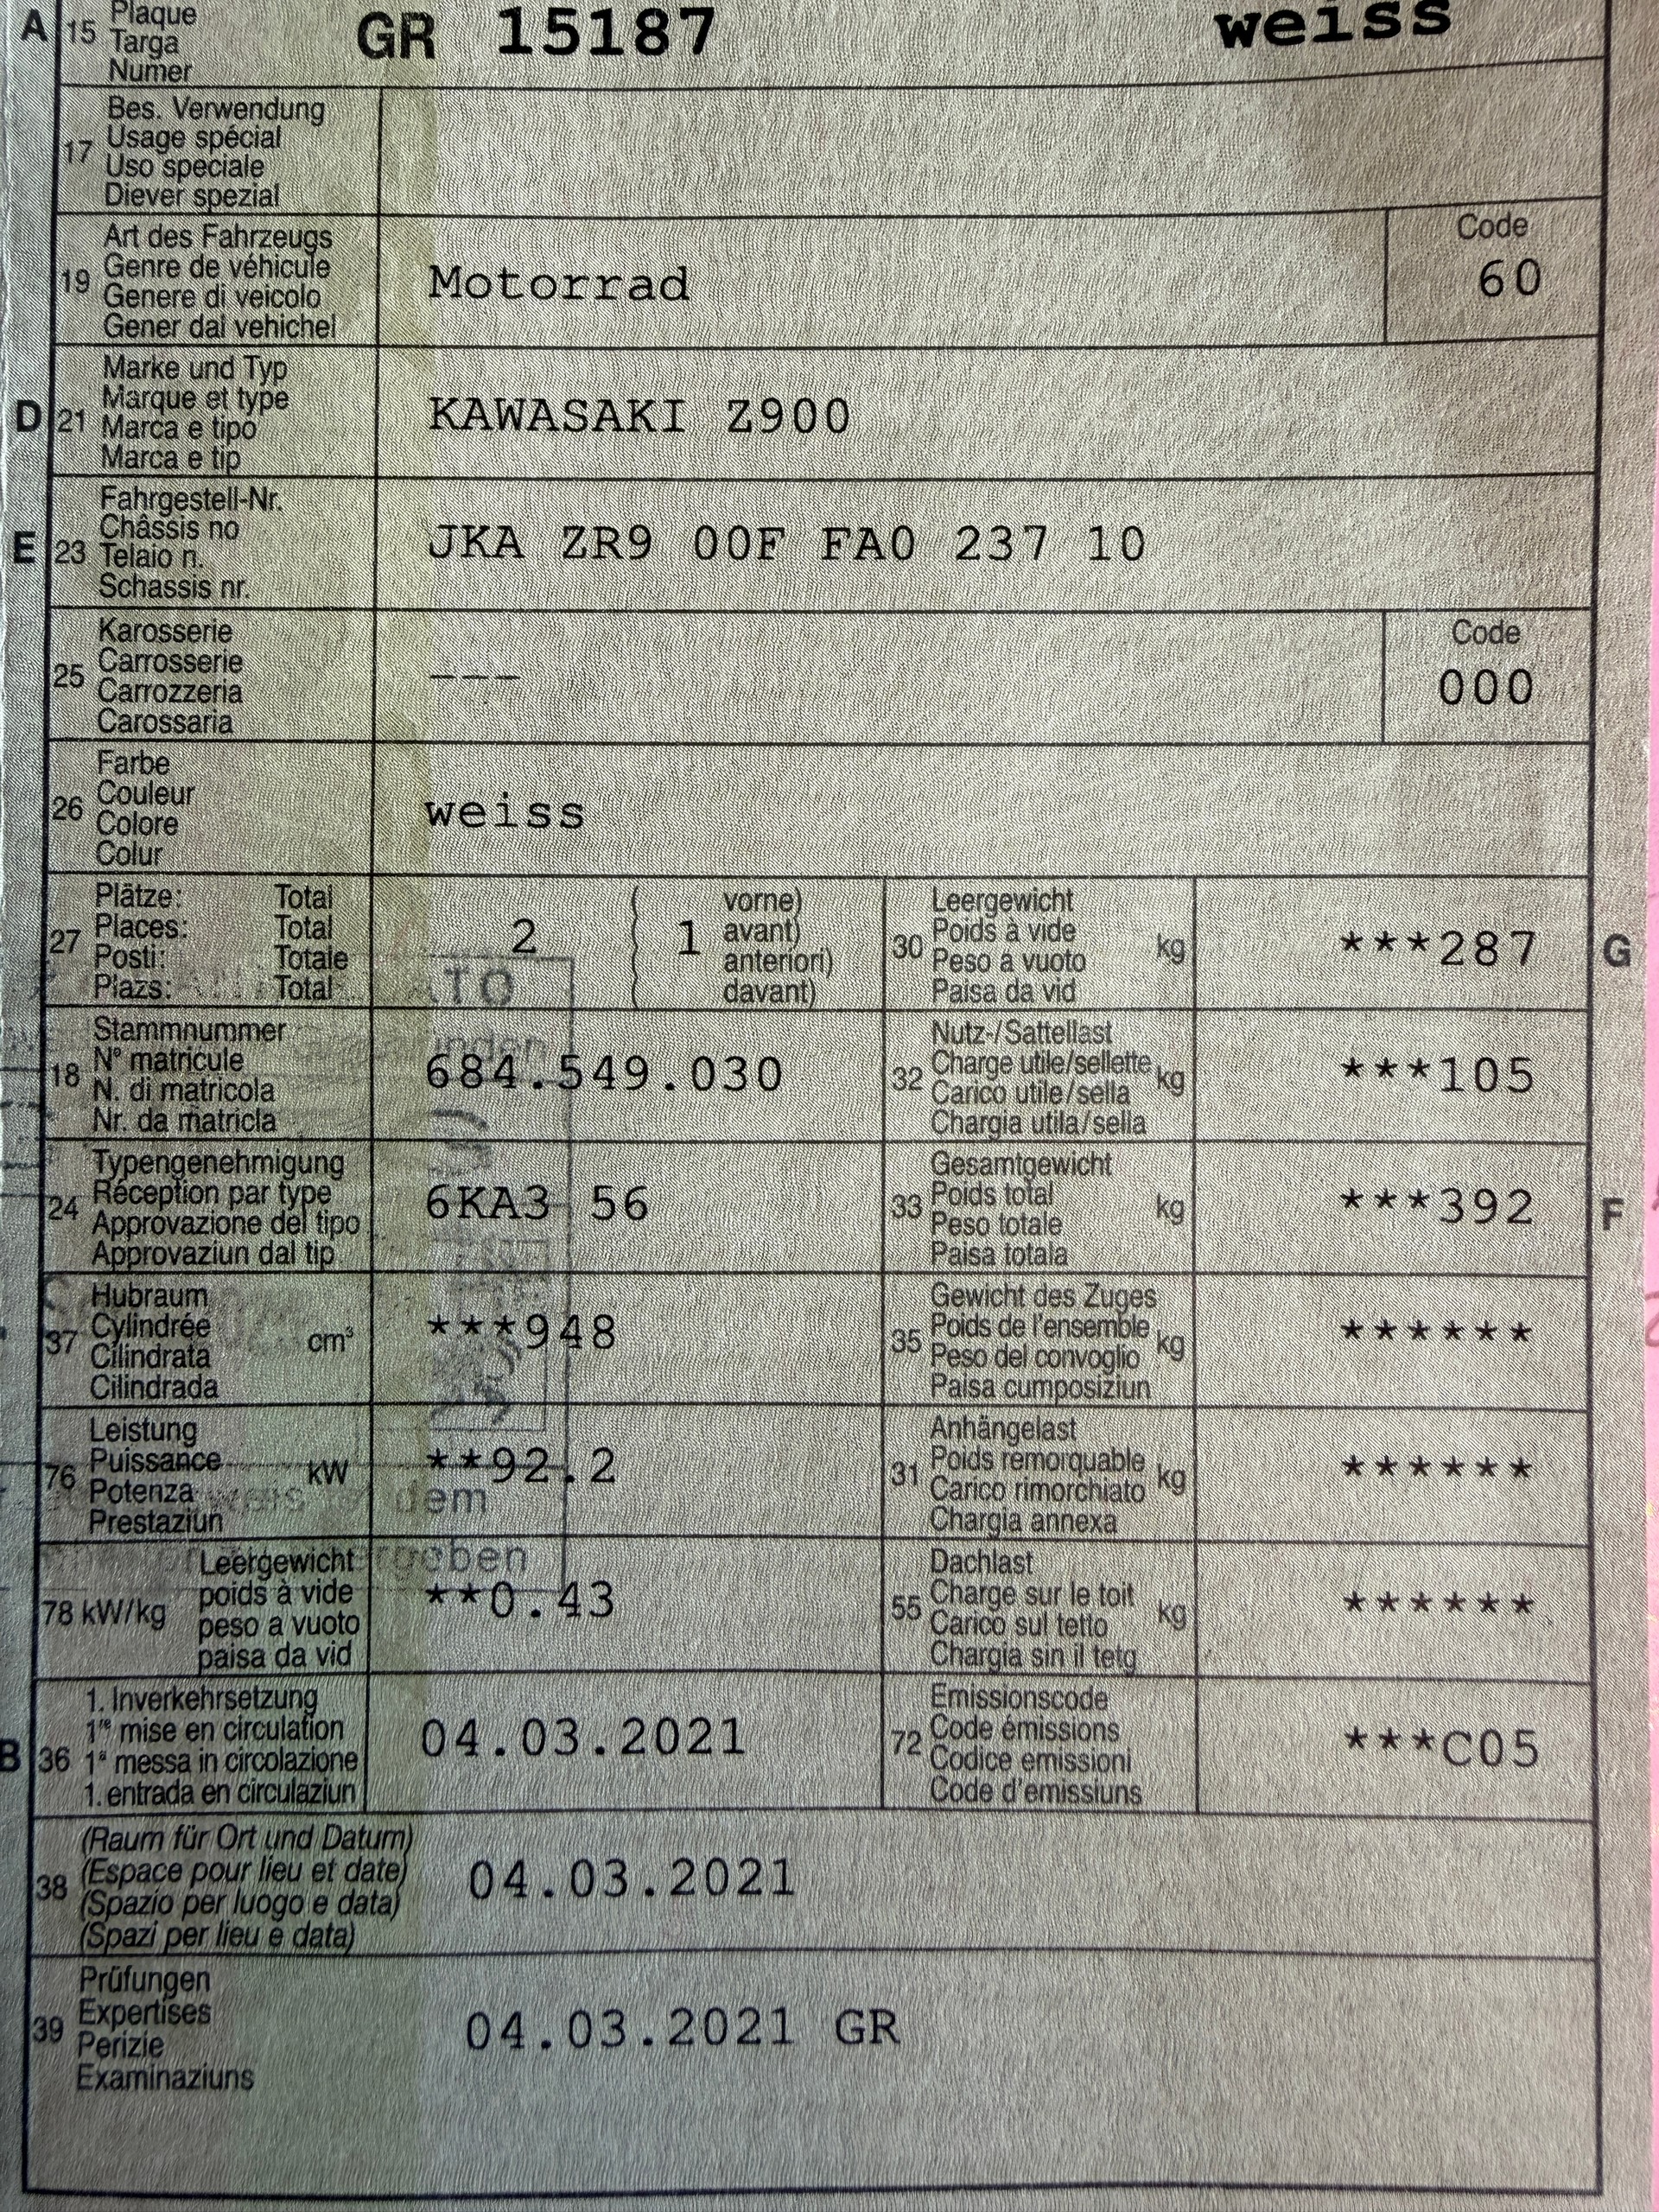 A 15 Plaque GR 15187 weiss
Targa
Numer
17 Bes. Verwendung
Usage spécial
Uso speciale
Diever spezial
19 Art des Fahrzeugs
Genre de véhicule
Genere di veicolo
Gener dal vehichel
Motorrad
Code
60
D 21 Marke und Typ
Marque et type
Marca e tipo
Marca e tip
KAWASAKI Z900
E 23 Fahrgestell-Nr.
Châssis no
Telaio n.
Schassis nr.
JKA ZR9 00F FA0 237 10
25 Karosserie
Carrosserie
Carrozzeria
Carossaria
---
Code
000
26 Farbe
Couleur
Colore
Colur
weiss
27 Plätze: Total
Places: Total
Posti: Totale
Plazs: Total
2 ( 1 vorne)
avant)
anteriori)
davant)
30 Leergewicht
Poids à vide
Peso a vuoto
Paisa da vid
kg ***287 G
18 Stammnummer
N° matricule
N. di matricola
Nr. da matricla
684.549.030
32 Nutz-/Sattellast
Charge utile/sellette
Carico utile/sella
Chargia utila/sella
kg ***105
24 Typengenehmigung
Réception par type
Approvazione del tipo
Approvaziun dal tip
6KA3 56
33 Gesamtgewicht
Poids total
Peso totale
Paisa totala
kg ***392 F
37 Hubraum
Cylindrée
Cilindrata
Cilindrada
cm³ ***948
35 Gewicht des Zuges
Poids de l'ensemble
Peso del convoglio
Paisa cumposiziun
kg ******
76 Leistung
Puissance
Potenza
Prestaziun
kW **92.2
31 Anhängelast
Poids remorquable
Carico rimorchiato
Chargia annexa
kg ******
78 kW/kg Leergewicht
poids à vide
peso a vuoto
paisa da vid
**0.43
55 Dachlast
Charge sur le toit
Carico sul tetto
Chargia sin il tetg
kg ******
B 36 1. Inverkehrsetzung
1re mise en circulation
1a messa in circolazione
1. entrada en circulaziun
04.03.2021
72 Emissionscode
Code émissions
Codice emissioni
Code d'emissiuns
***C05
38 (Raum für Ort und Datum)
(Espace pour lieu et date)
(Spazio per luogo e data)
(Spazi per lieu e data)
04.03.2021
39 Prüfungen
Expertises
Perizie
Examinaziuns
04.03.2021 GR